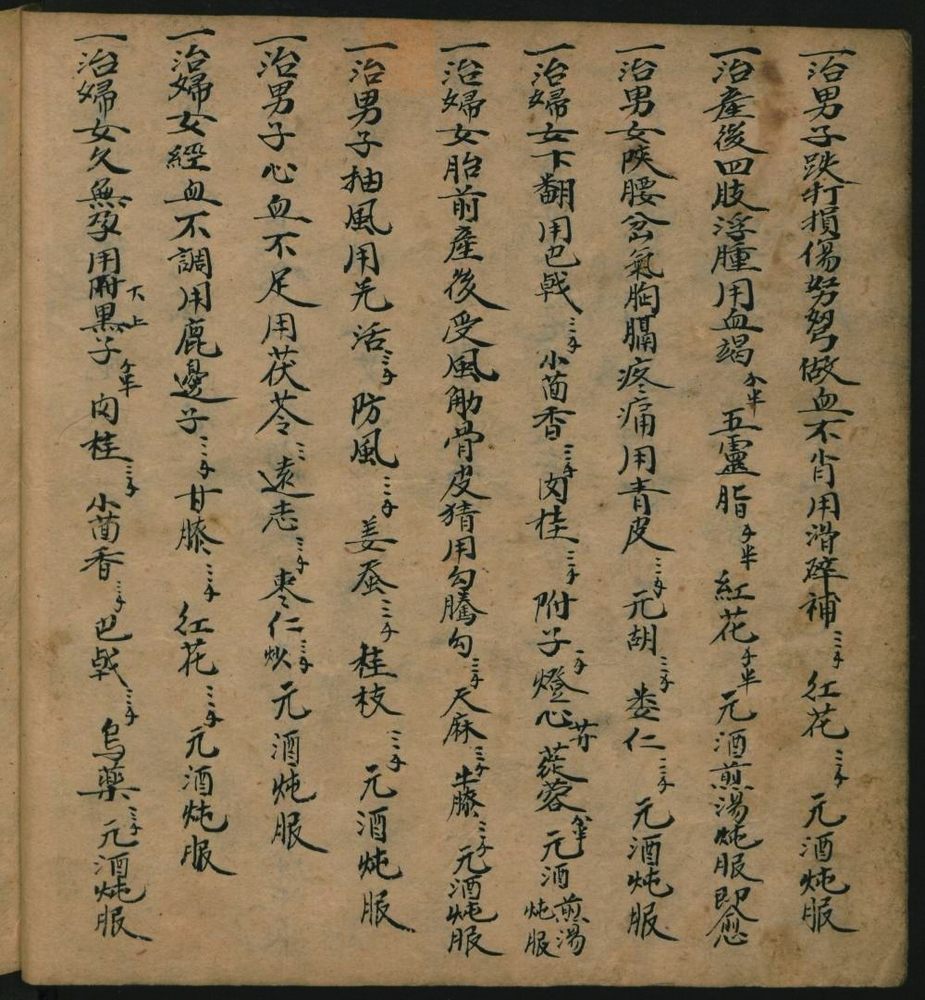 一治男子跌打損傷努努做血不肖用滑碎補三ふ 紅花三ふ 元酒炖服
一治產後四肢浮腫用血竭ふ半 五靈脂ふ半 紅花ふ半 元酒煎湯炖服即愈
一治男女陝腰岔氣胸膈疼痛用青皮三ふ 元胡三ふ 娄仁三ふ 元酒炖服
一治婦女下翻用巴戟三ふ 小茴香三ふ 肉桂三ふ 附子一ふ 燈心 蓉 元酒煎湯炖服
一治婦女胎前產後受風觔骨皮猜用勾騰勾三ふ 天麻三ふ 膝三ふ 元酒炖服
一治男子抽風用羌活三ふ 防風三ふ 姜蚕三ふ 桂枝三ふ 元酒炖服
一治男子心血不足用茯苓三 遠志三ふ 枣仁炒三ふ 元酒炖服
一治婦女經血不調用鹿邊子三ふ 甘膝三ふ 紅花三ふ 元酒炖服
一治婦女久無孕用附黒子下上 肉桂三ふ 小茴香三ふ 巴戟三ふ 烏藥三ふ 元酒炖服